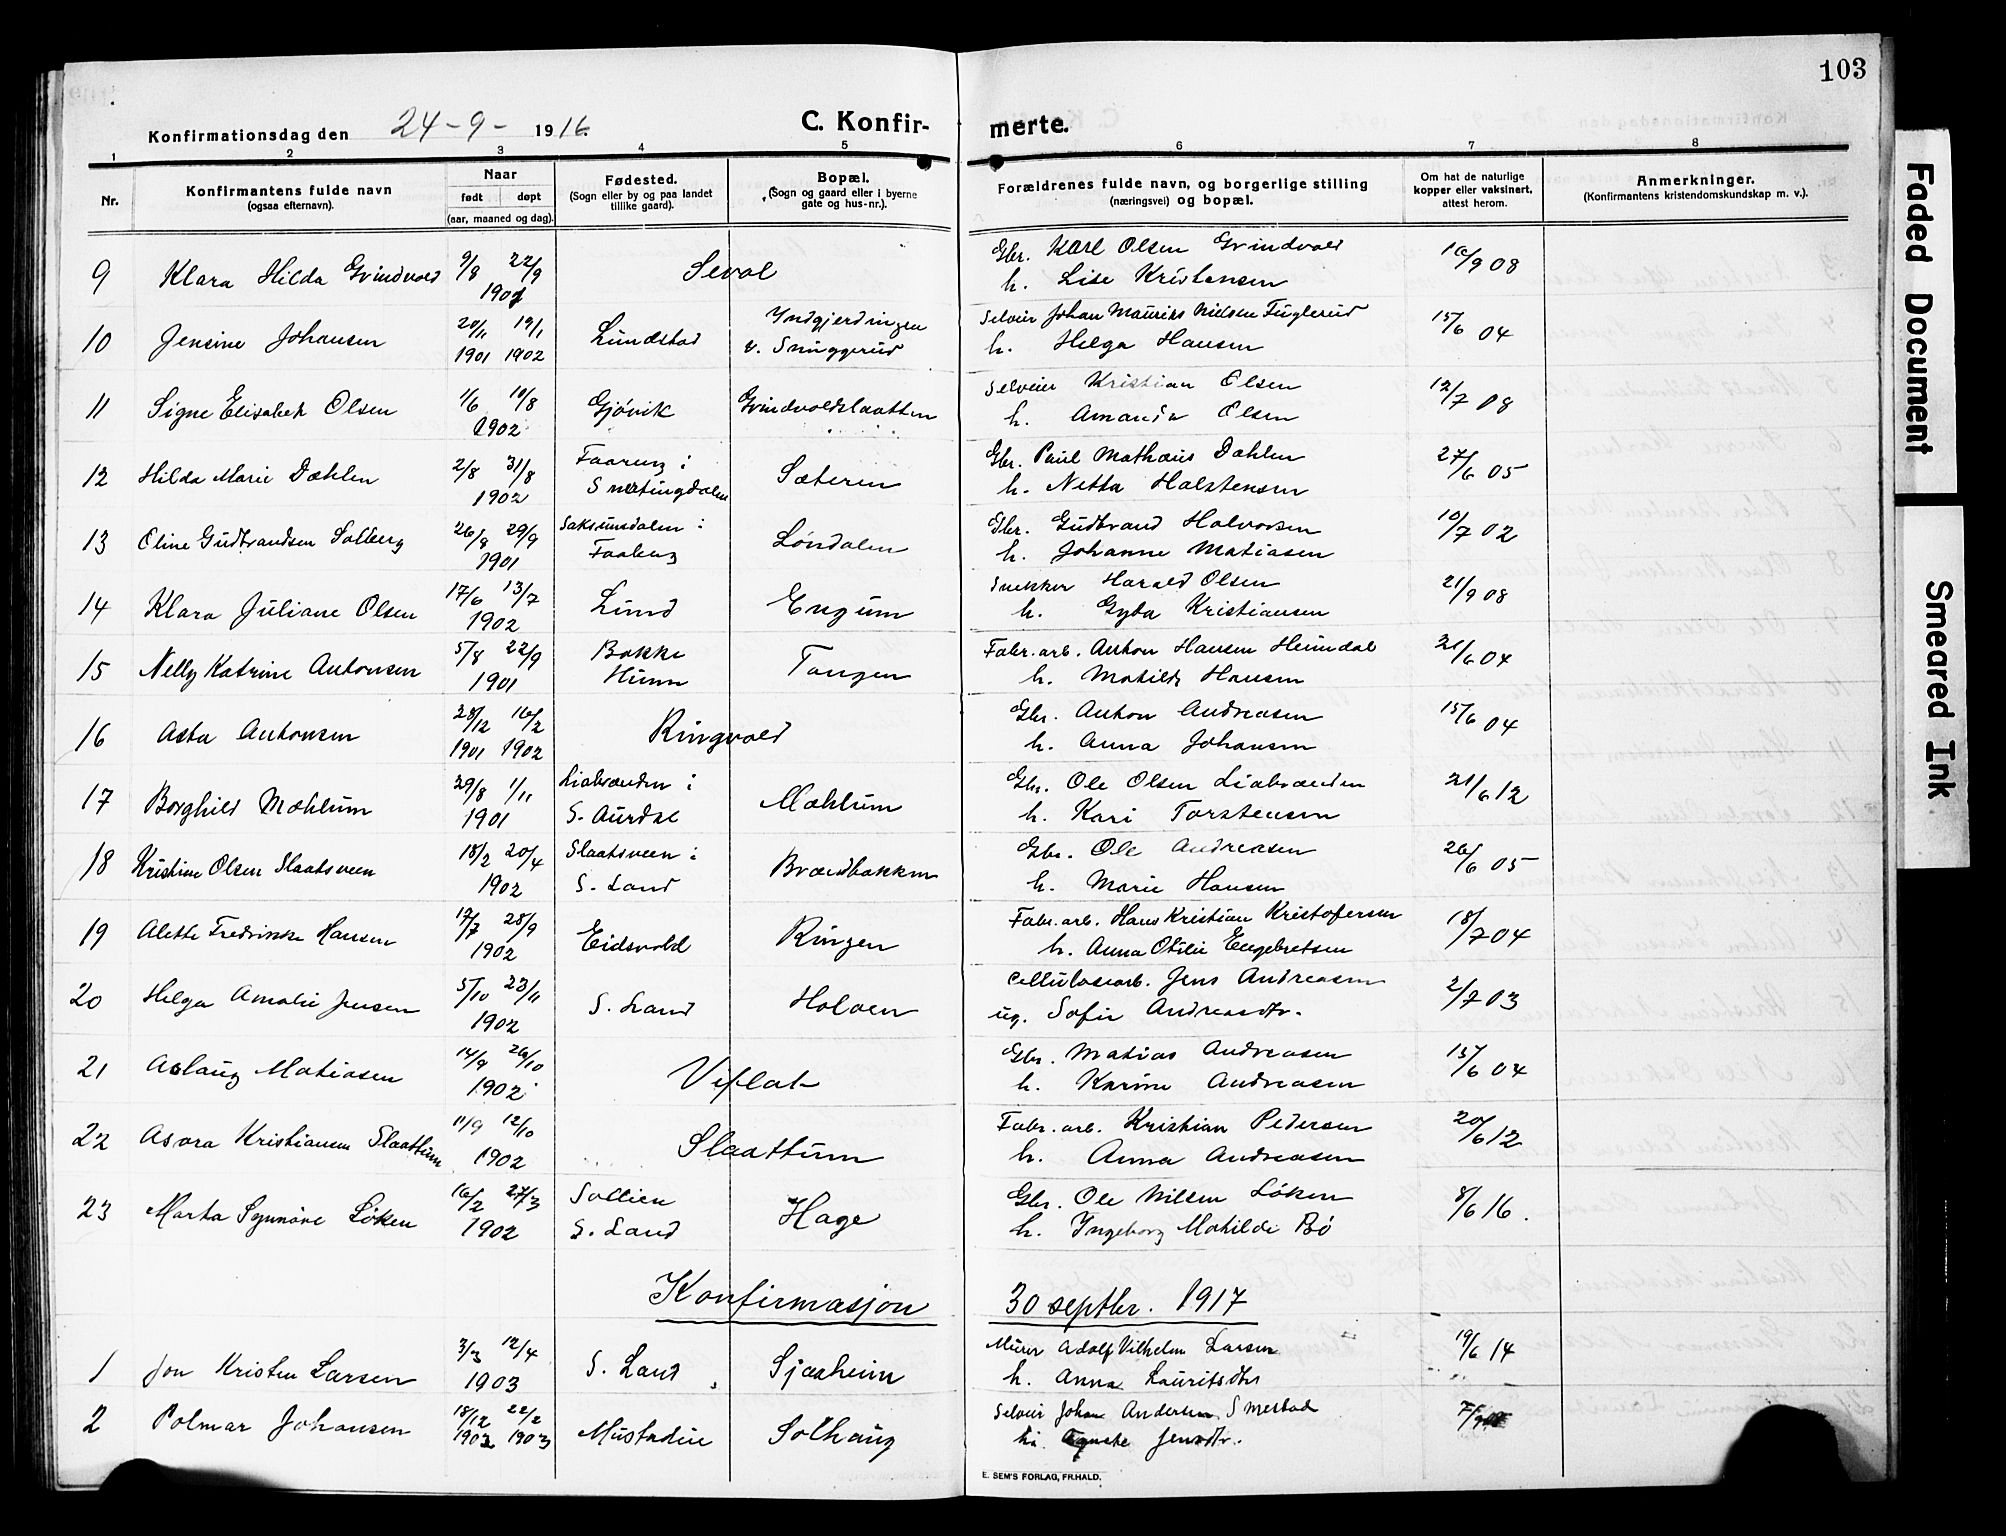 103
Konfirmationsdag den 24-9- 1916. C. Konfir- merte.
1 2 3 4 5 6 7 8
Nr. Konfirmantens fulde navn (ogsaa efternavn). Naar født døpt (aar, maaned og dag). Fødested. (Sogn eller by og paa landet tillike gaard). Bopæl. (Sogn og gaard eller i byerne gate og hus-nr.). Forældrenes fulde navn, og borgerlige stilling (næringsvei) og bopæl. Om hat de naturlige kopper eller vaksinert, attest herom. Anmerkninger. (Konfirmantens kristendomskundskap m. v.).
9 Klara Hilda Grindvold 9/9 22/9 1901 Seval Gbr. Karl Olsen Grindvold 10/9 08
h. Lise Kristensen
10 Jensine Johansen 20/11 19/1 1901 1902 Lundstad Yndgjerdingen v. Snuggerud Selveier Johan Mauritz Nielsen Fuglerud 15/6 04
h. Helga Hansen
11 Signe Elisabeth Olsen 1/6 10/8 1902 Gjøvik Grindvoldslaatten Selveier Kristian Olsen 12/7 08
h. Amanda Olsen
12 Hilda Marie Dæhlen 2/8 31/8 1902 Faaren i Snertingdalen Sæteren Gbr. Paul Mathæus Dæhlen 27/6 05
h. Netta Halstensen
13 Oline Gudbrandsen Solberg 26/8 29/9 1901 Saksumdalen i Faaberg Løndalen Gbr. Gudbrand Halvorsen 10/7 02
h. Johanne Matiasen
14 Klara Juliane Olsen 17/6 13/7 1902 Lund Engum Snekker Harald Olsen 21/9 08
h. Gyda Kristiansen
15 Nelly Katrine Antonsen 5/8 22/9 1901 Bakke Hunn Tangen Fabr.arb. Anton Hansen Heimdal 21/6 04
h. Matilde Hansen
16 Asta Antonsen 28/12 16/2 1901 1902 Ringvold Gbr. Anton Andreasen 15/6 04
h. Anna Johansen
17 Borghild Mæhlum 29/8 1/11 1901 Liabrænden i S. Aurdal Mæhlum Gbr. Ole Olsen Liabrænden 21/6 12
h. Kari Torstensen
18 Kristine Olsen Slaatsveen 18/2 20/4 1902 Slaatsveen i S. Land Brændbakken Gbr. Ole Andreasen 26/6 05
h. Marie Hansen
19 Alette Fredrikke Hansen 17/7 28/9 1902 Eidsvold Ringen Fabr.arb. Hans Kristian Kristofersen 18/7 04
h. Anna Otilie Engebretsen
20 Helga Amalie Jensen 5/10 23/11 1902 S. Land Holoen Cellulosearb. Jens Andreasen 2/7 03
ug. Sofie Andreasdtr.
21 Aslaug Matiasen 14/9 26/10 1902 Viflat Gbr. Matias Andreasen 15/6 04
h. Karine Andreasen
22 Asora Kristiansen Slaattum 11/9 12/10 1902 Slaattum Fabr.arb. Kristian Pedersen 20/6 12
h. Anna Andreasen
23 Marta Synnøve Løken 16/2 27/3 1902 Sollien S. Land Hage Gbr. Ole Nilsen Løken 8/6 16.
h. Ingeborg Mathilde Bø
Konfirmasjon 30 septbr. 1917
1 Jon Kristen Larsen 3/3 12/4 1903 S. Land Sjaaheim Murer Adolf Vilhelm Larsen 19/6 14
h. Anna Lauritsdtr
2 Polmar Johansen 18/12 22/2 1902 1903 Mustadlie Solhaug Selveier Johan Andersen Smestad
h. Agnete Jensdtr.
E. SEM'S FORLAG, FR.HALD.
Faded Document
Smeared Ink